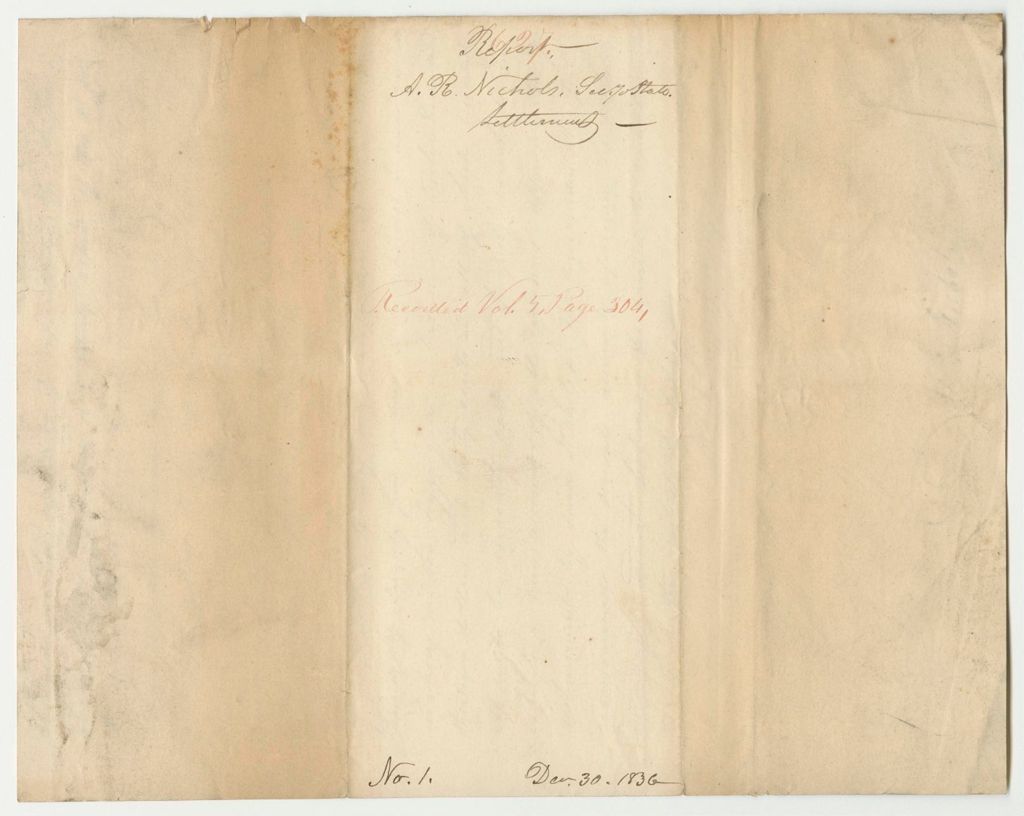 Report.
A. R. Nichols, Secy of State.
Settlement
Recorded Vol. 5, Page 304,
No. 1.
Dec. 30. 1836